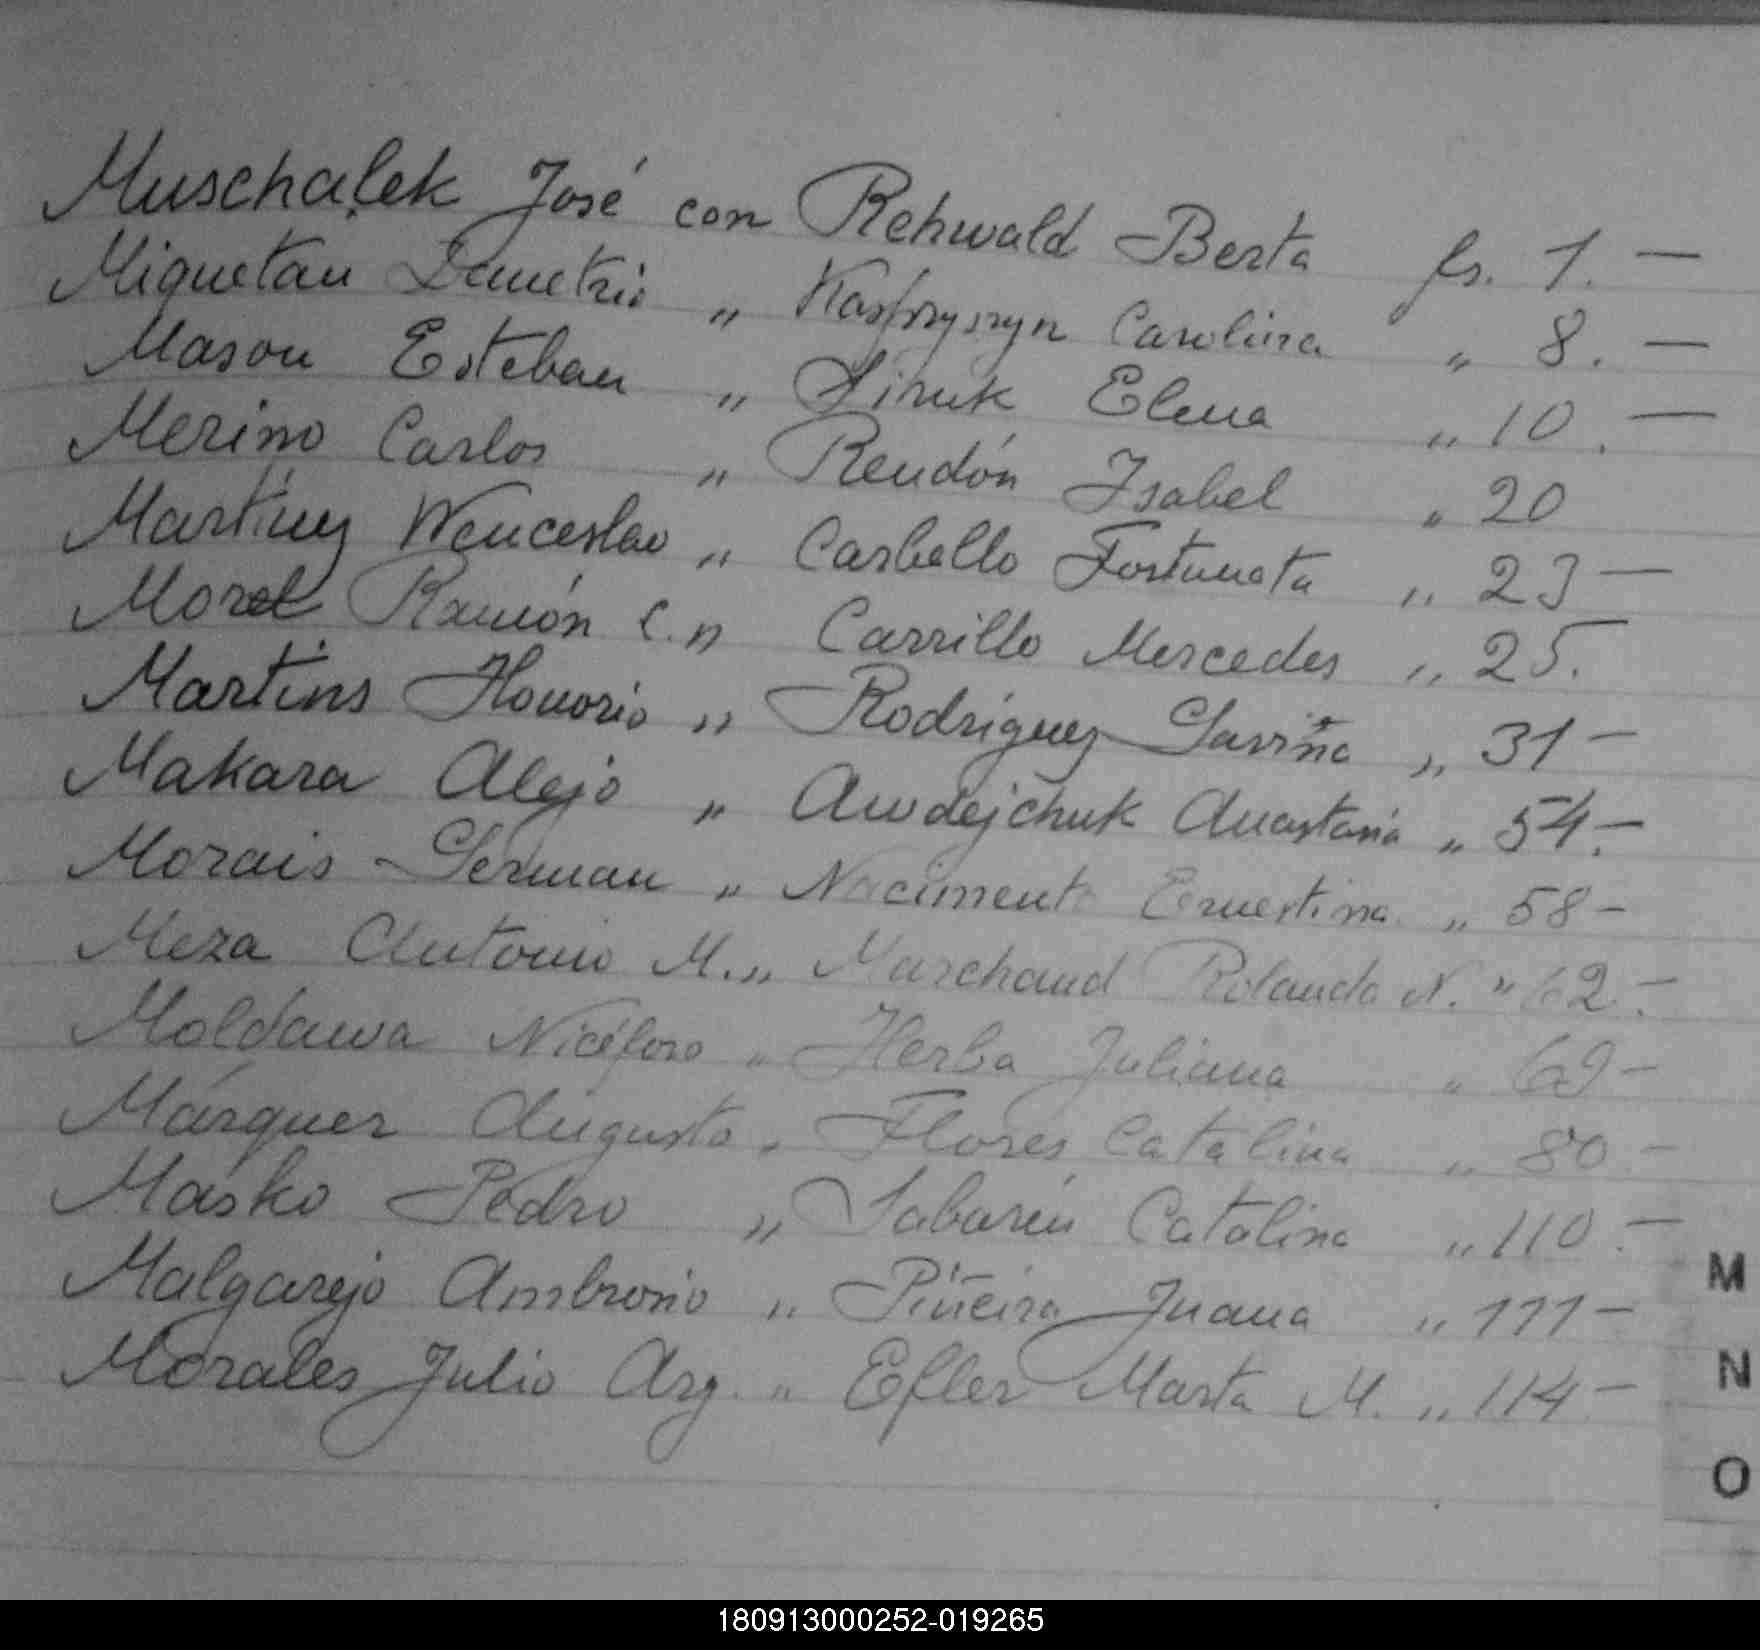 Muschalek José con Rehwald Berta fs. 1. —
Miquetan Demetrio „ Kasprzyszyn Carolina „ 8. —
Mason Esteban „ Siruk Elena „ 10. —
Merino Carlos „ Rendón Isabel „ 20
Martinez Wenceslao „ Carbello Fortunata „ 23 —
Morel Ramón C. „ Carrillo Mercedes „ 25.
Martins Honorio „ Rodriguez Saviña „ 31 —
Makara Alejo „ Awdejchuk Anastasia „ 54. —
Morais German „ Nacimento Ernestina „ 58 —
Meza Antonio M. „ Marchand Rolanda N. „ 62. —
Moldawa Nicéforo „ Herba Juliana „ 69 —
Márquez Augusto „ Flores Catalina „ 80 —
Masko Pedro „ Catalina „ 110. —
Malgarejo Ambrosio „ Piñeira Juana „ 111 —
Morales Julio Arg. „ Efler Marta M. „ 114 —
M
N
O
180913000252-019265